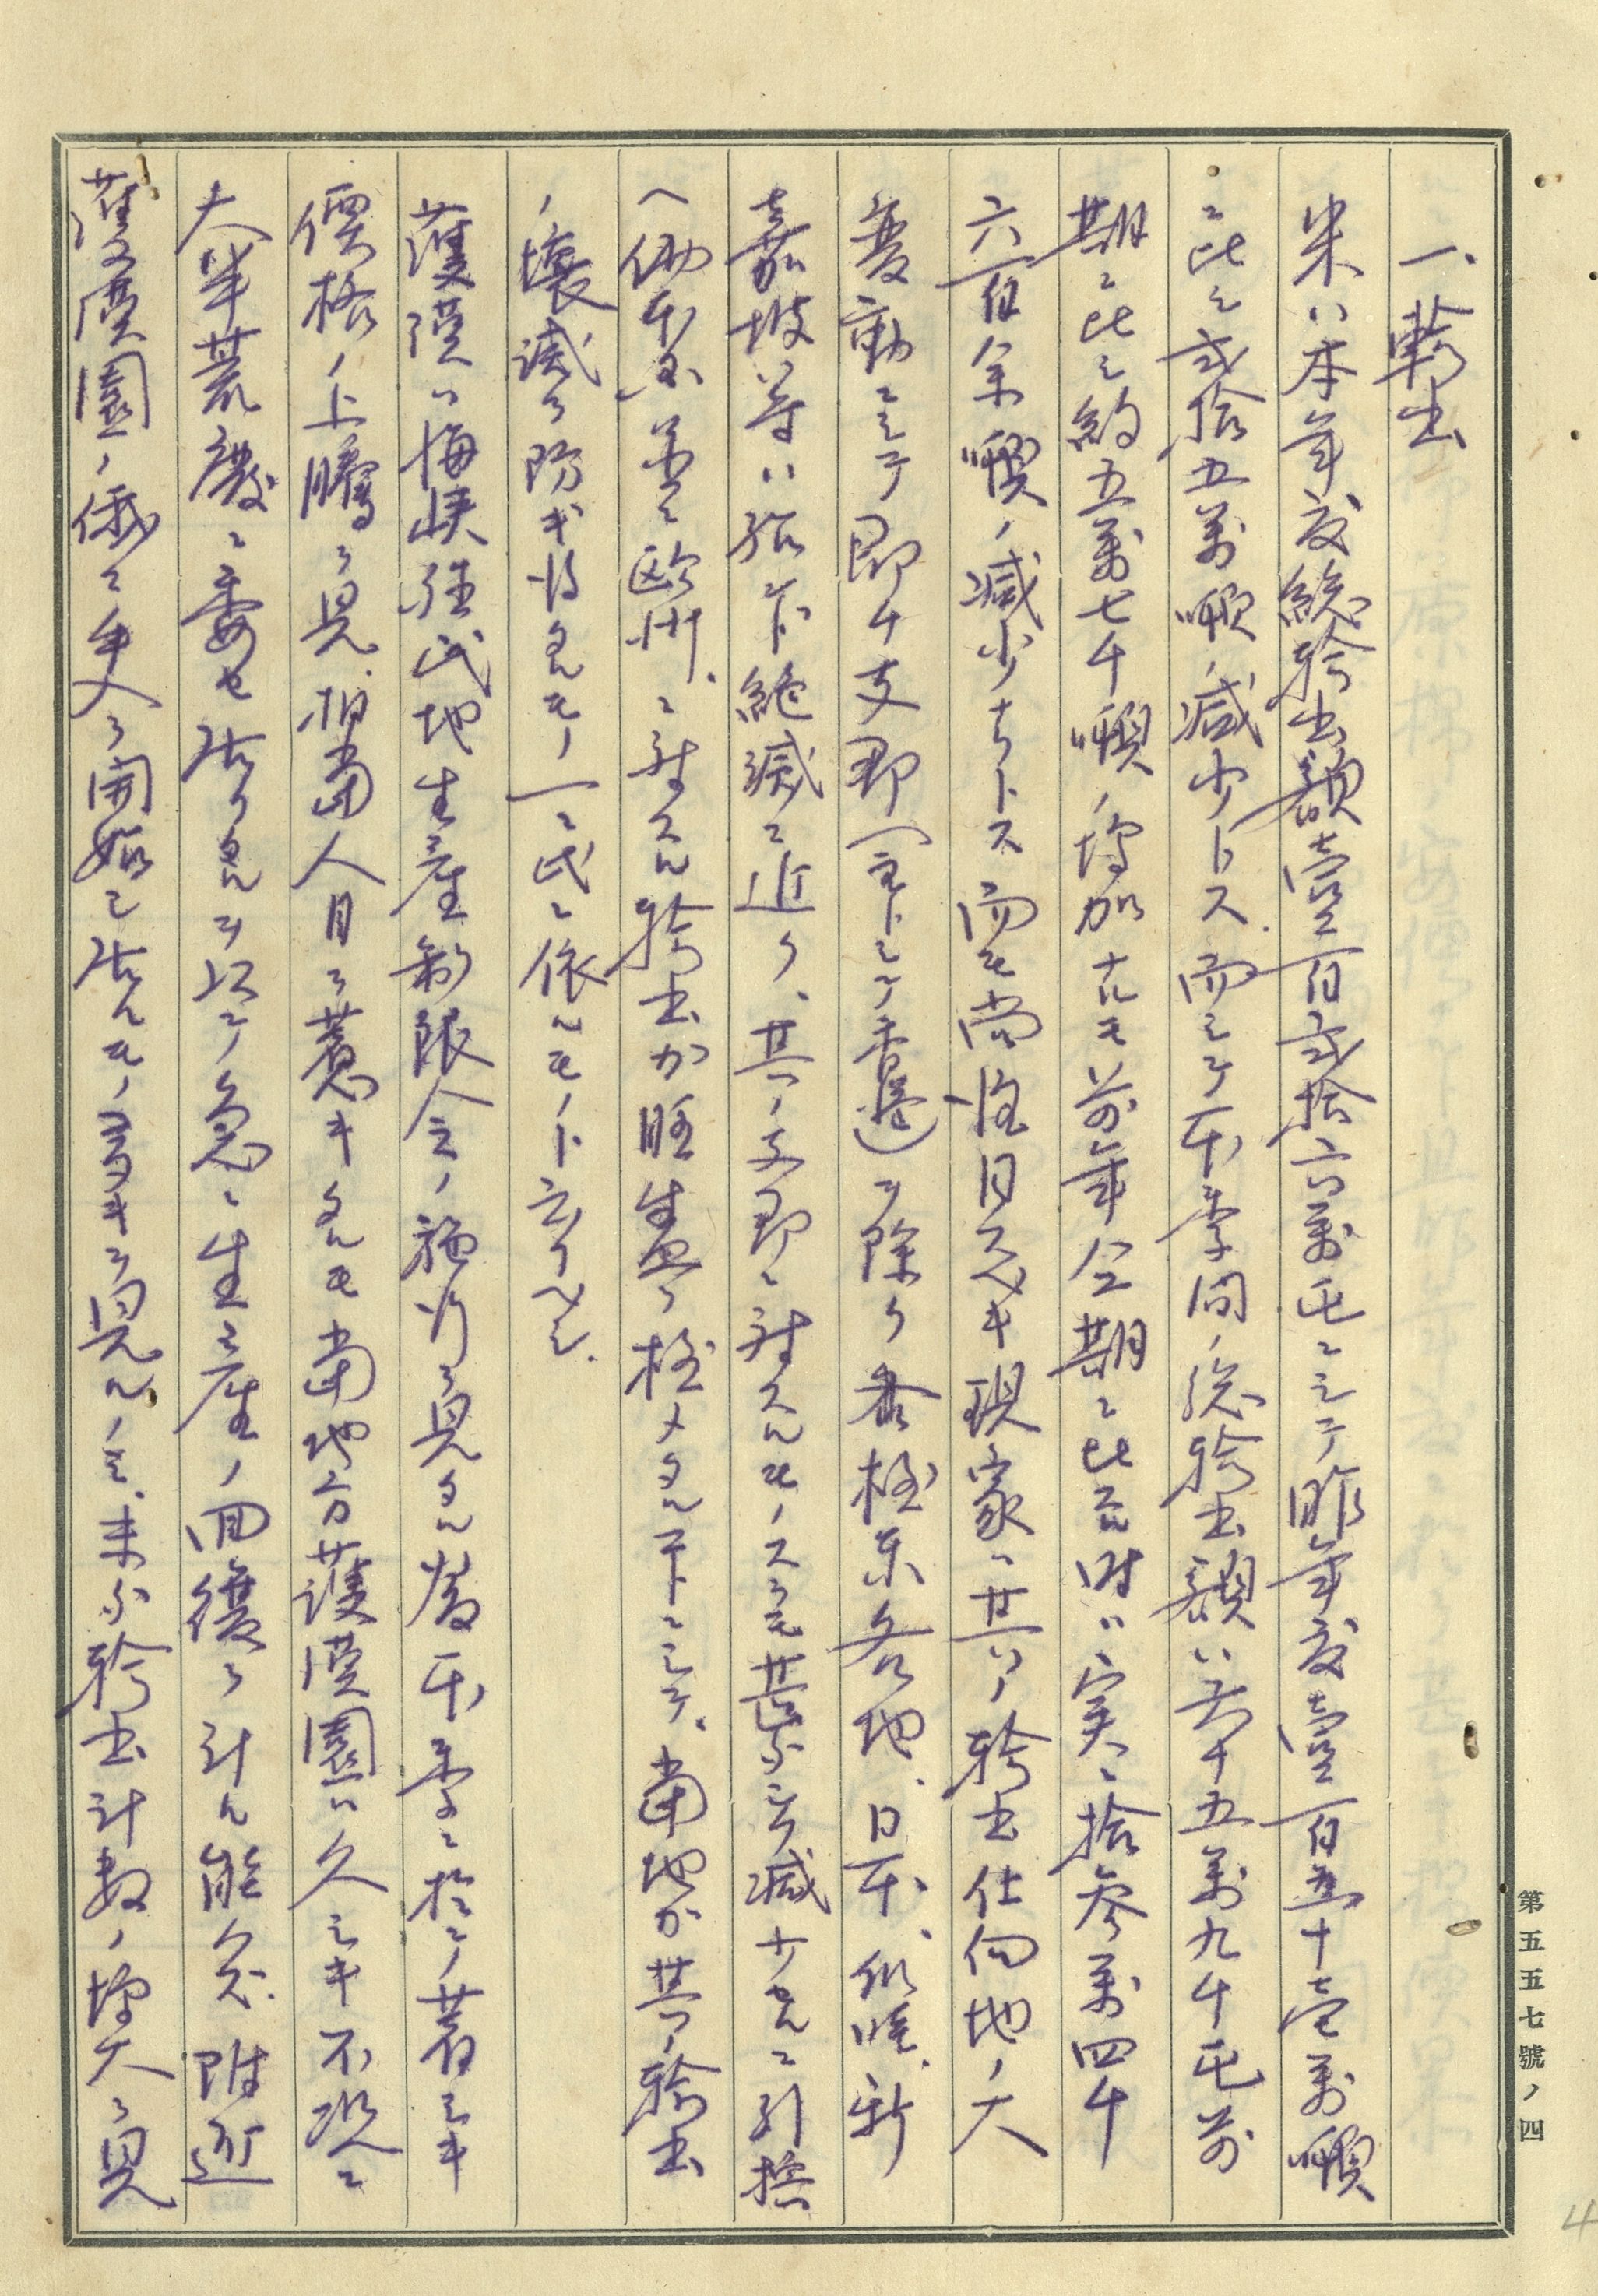 一、輸出
米ハ本年度総輸出額壹百弐拾六萬屯ニシテ昨年度壹百五十壱萬噸
ニ比シ弐拾五萬噸ノ減少トス、而シテ本季間ノ総輸出額ハ五十五萬九千屯前
期ニ比シ約五萬七千噸ノ増加ナルモ前年仝期ニ比スル時ハ実ニ拾参萬四千
六百余噸ノ減少ナリトス而モ尚怪日スベキ現象ハ其ノ輸出仕向地ノ大
変動ニシテ即チ支那(主トシテ香港)ヲ除ク泰極東各地、日本、比嶋、新
嘉坡等ハ殆ント絶滅ニ近ク、其ノ支那ニ対スルモノスラモ甚ダシク減少セルニ引換
ヘ佛本国並ニ欧洲、ニ対スル輸出カ旺盛ヲ極メタル事トニシテ、当地カ其ノ輸出
ノ壊滅ヲ防ギ得タルモノ一ニ此ニ依ルモノト言フベシ、
護謨ハ海峡殖民地生産制限令ノ施行ヲ見タル為本季ニ於テ著シキ
價格ノ上騰ヲ見、相当人目ヲ惹キタルモ当地方護謨園ハ久シキ不況ニ
大半荒廢ニ委セ居リタルヲ以テ急ニ生産ノ回復ヲ計ル能ハズ、附近
護謨園ノ俄ニ手入ヲ開始シ居ルモノ多キヲ見ルノミ、未ダ輸出計数ノ増大ヲ見
第五五七號ノ四
4